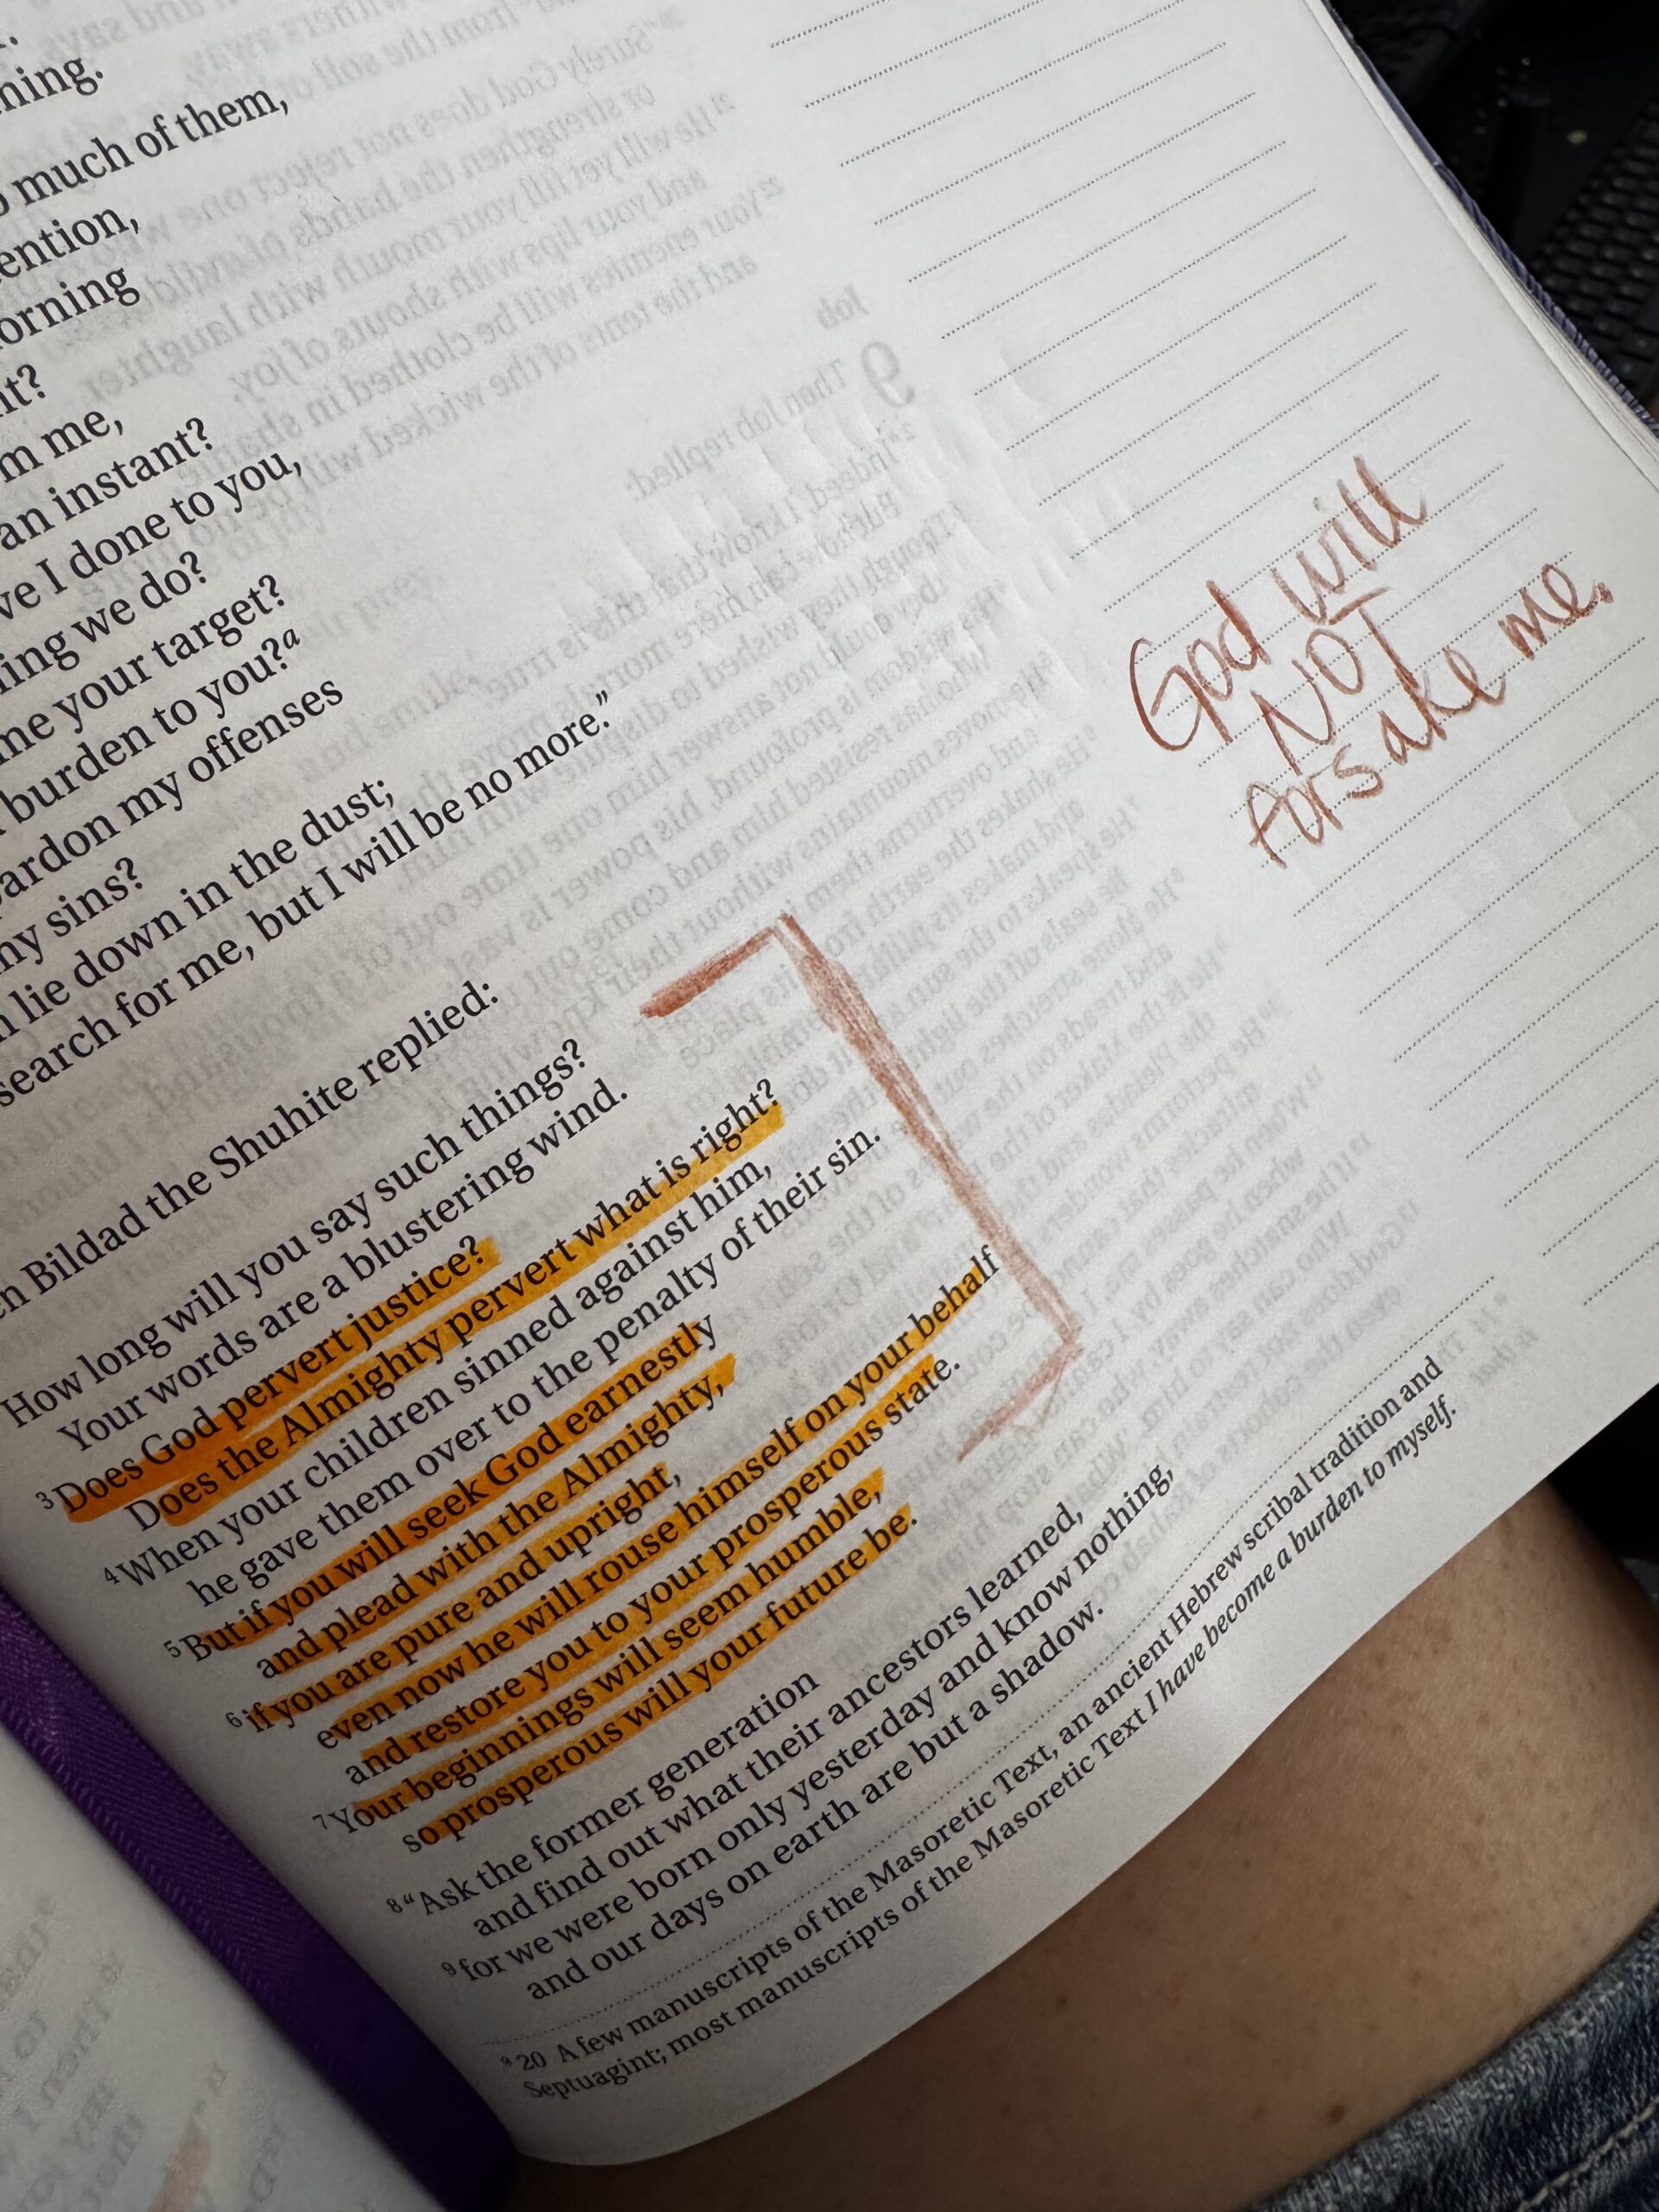 ning.
much of them,
ention,
orning
it?
m me,
an instant?
ve I done to you,
ing we do?
me your target?
burden to you?a
pardon my offenses
my sins?
lie down in the dust;
search for me, but I will be no more.”
en Bildad the Shuhite replied:
How long will you say such things?
Your words are a blustering wind.
3 Does God pervert justice?
Does the Almighty pervert what is right?
4 When your children sinned against him,
he gave them over to the penalty of their sin.
5 But if you will seek God earnestly
and plead with the Almighty,
6 if you are pure and upright,
even now he will rouse himself on your behalf
and restore you to your prosperous state.
7 Your beginnings will seem humble,
so prosperous will your future be.
8 “Ask the former generation
and find out what their ancestors learned,
9 for we were born only yesterday and know nothing,
and our days on earth are but a shadow.
a 20 A few manuscripts of the Masoretic Text, an ancient Hebrew scribal tradition and
Septuagint; most manuscripts of the Masoretic Text I have become a burden to myself.
God will
NOT
forsake me.